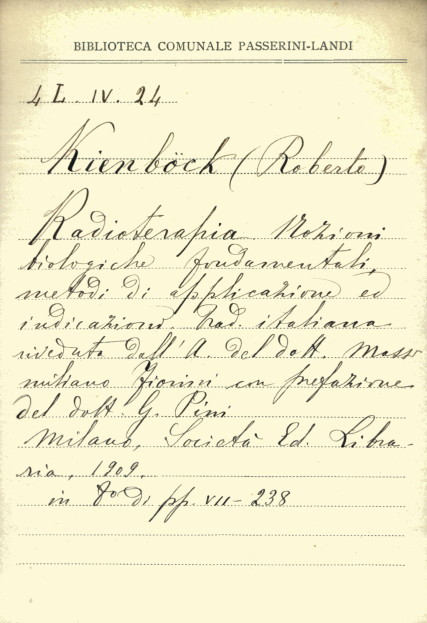 BIBLIOTECA COMUNALE PASSERINI-LANDI
4 L. IV. 24
Kienböck (Roberto)
Radioterapia. Nozioni
biologiche fondamentali,
metodi di applicazione ed
indicazioni. Trad. italiana
riveduta dall'A. del dott. Massi-
miliano com prefazione
del dott. G. Pini
Milano, Società Ed. Libra-
ria, 1909.
in 8° di pp. VII-238